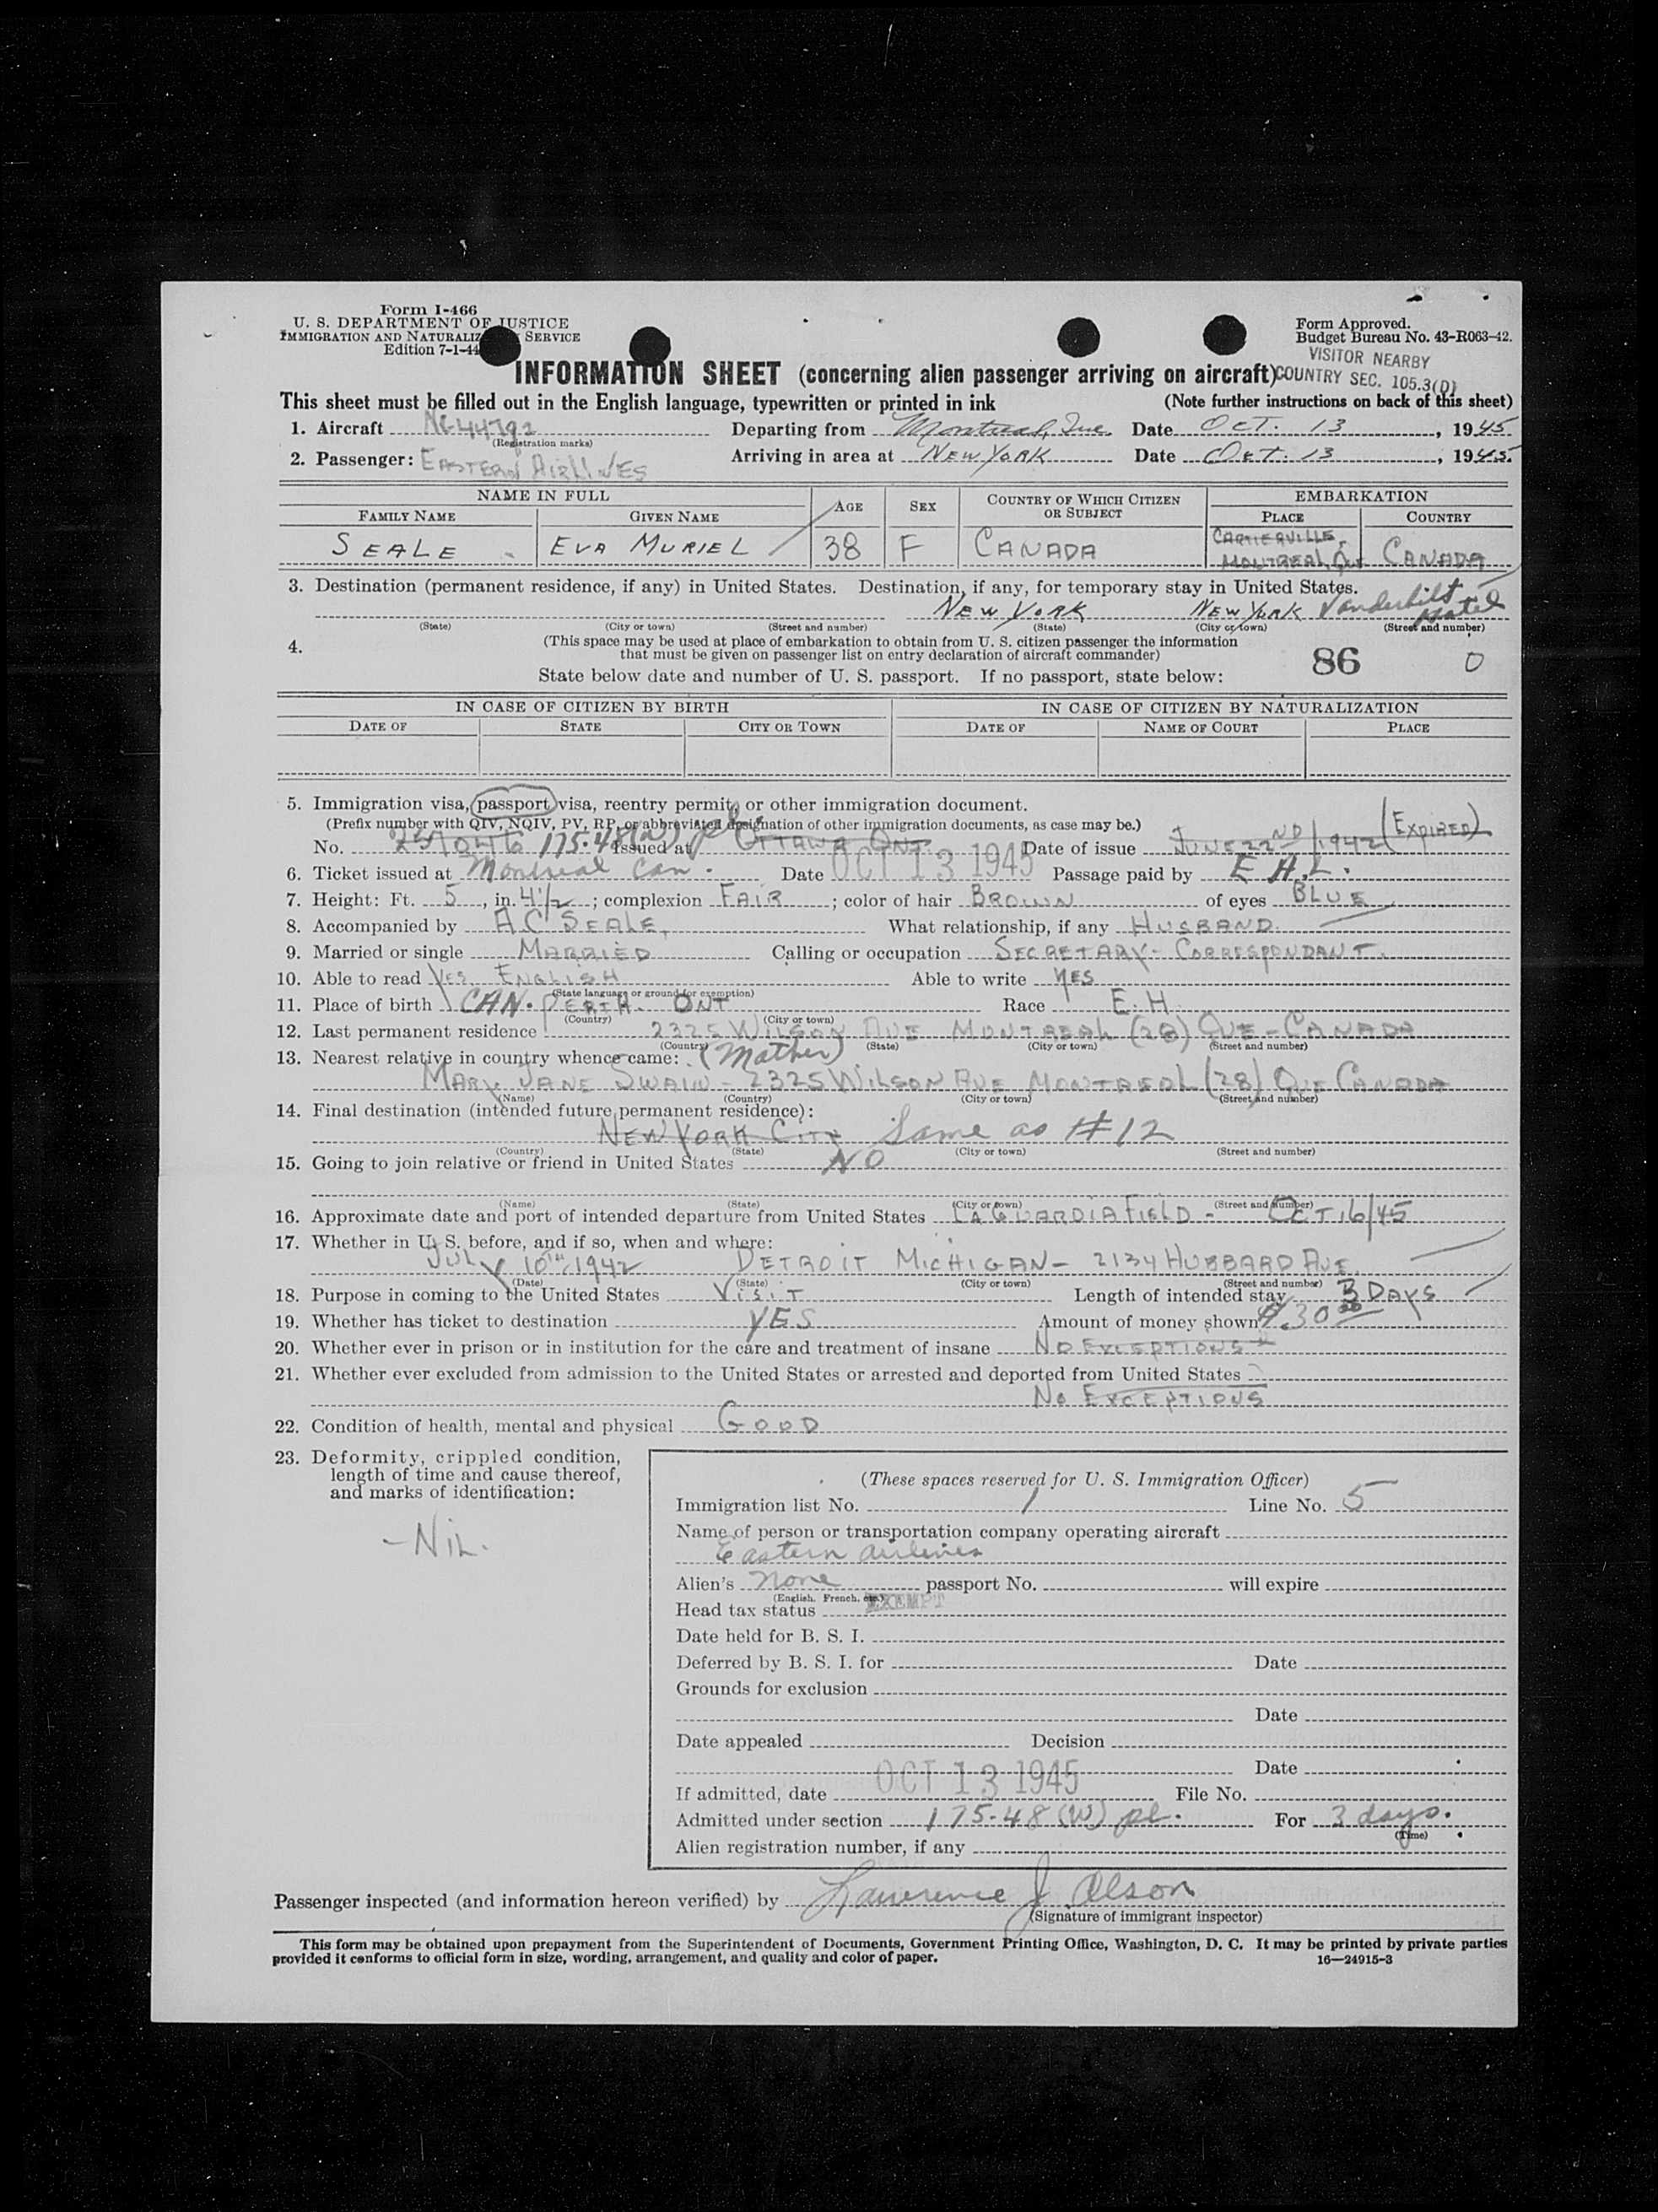 Form I-466
U. S. DEPARTMENT OF JUSTICE
IMMIGRATION AND NATURALIZ SERVICE
Edition 7-1-44
Form Approved.
Budget Bureau No. 43-R063-42.
VISITOR NEARBY
COUNTRY SEC. 105.3(D)
INFORMATION SHEET (concerning alien passenger arriving on aircraft)
This sheet must be filled out in the English language, typewritten or printed in ink (Note further instructions on back of this sheet)
1. Aircraft Departing from Montreal, Que. Date Oct. 13, 1945
(Registration marks)
2. Passenger: EASTERN AIRLINES Arriving in area at NEW YORK Date Oct. 13, 1945.
NAME IN FULL AGE SEX COUNTRY OF WHICH CITIZEN OR SUBJECT EMBARKATION
FAMILY NAME GIVEN NAME PLACE COUNTRY
SEALE EVA MURIEL 38 F CANADA CARTIERVILLE, MONTREAL, QUE CANADA
3. Destination (permanent residence, if any) in United States. Destination, if any, for temporary stay in United States.
NEW YORK NEW YORK Vanderbilt Hotel
(State) (City or town) (Street and number) (State) (City or town) (Street and number)
4. (This space may be used at place of embarkation to obtain from U. S. citizen passenger the information
that must be given on passenger list on entry declaration of aircraft commander)
86 0
State below date and number of U. S. passport. If no passport, state below:
IN CASE OF CITIZEN BY BIRTH IN CASE OF CITIZEN BY NATURALIZATION
DATE OF STATE CITY OR TOWN DATE OF NAME OF COURT PLACE
5. Immigration visa, passport visa, reentry permit, or other immigration document.
(Prefix number with QIV, NQIV, PV, RP, or abbreviated designation of other immigration documents, as case may be.)
No. 175.48(W) pl. Issued at OTTAWA ONT Date of issue JUNE 22ND/1942 (EXPIRED)
6. Ticket issued at Montreal Can. Date OCT 13 1945 Passage paid by E.A.L.
7. Height: Ft. 5, in. 4 1/2; complexion FAIR; color of hair BROWN of eyes BLUE
8. Accompanied by A C SEALE, What relationship, if any HUSBAND.
9. Married or single MARRIED Calling or occupation SECRETARY - CORRESPONDANT.
10. Able to read YES ENGLISH Able to write YES
(State language or ground for exemption)
11. Place of birth CAN. PERTH. ONT Race E.H.
(Country) (City or town)
12. Last permanent residence 2325 WILSON AVE MONTREAL (28) QUE - CANADA
(Country) (State) (City or town) (Street and number)
13. Nearest relative in country whence came: (Mother)
MARY JANE SWAIN - 2325 WILSON AVE MONTREAL (28) QUE CANADA
(Name) (Country) (City or town) (Street and number)
14. Final destination (intended future permanent residence):
NEW YORK CITY Same as #12
(Country) (State) (City or town) (Street and number)
15. Going to join relative or friend in United States NO
(Name) (State) (City or town) (Street and number)
16. Approximate date and port of intended departure from United States LA GUARDIA FIELD - OCT 16/45
17. Whether in U. S. before, and if so, when and where:
JULY 10TH, 1942 DETROIT MICHIGAN - 2134 HUBBARD AVE.
(Date) (State) (City or town) (Street and number)
18. Purpose in coming to the United States VISIT Length of intended stay 3 DAYS
19. Whether has ticket to destination YES Amount of money shown $.30 00
20. Whether ever in prison or in institution for the care and treatment of insane NO EXCEPTIONS
21. Whether ever excluded from admission to the United States or arrested and deported from United States
NO EXCEPTIONS
22. Condition of health, mental and physical GOOD
23. Deformity, crippled condition,
length of time and cause thereof,
and marks of identification:
- NIL.
(These spaces reserved for U. S. Immigration Officer)
Immigration list No. 1 Line No. 5
Name of person or transportation company operating aircraft
Eastern airlines
Alien's None passport No. will expire
(English, French, etc.)
Head tax status EXEMPT
Date held for B. S. I.
Deferred by B. S. I. for Date
Grounds for exclusion
Date
Date appealed Decision
Date
If admitted, date OCT 13 1945 File No.
Admitted under section 175.48 (W) pl. For 3 days.
(Time)
Alien registration number, if any
Passenger inspected (and information hereon verified) by Lawrence J. Olson
(Signature of immigrant inspector)
This form may be obtained upon prepayment from the Superintendent of Documents, Government Printing Office, Washington, D. C. It may be printed by private parties
provided it conforms to official form in size, wording, arrangement, and quality and color of paper. 16—24915-3